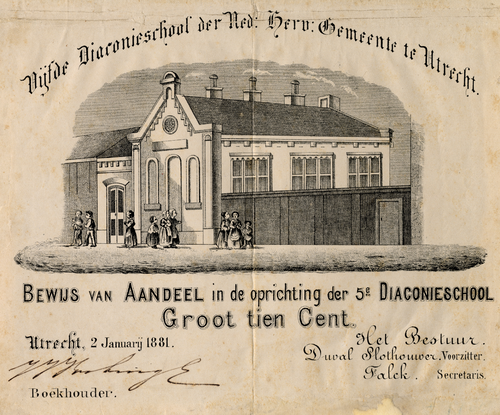 Vijfde Diaconieschool der Ned: Herv: Gemeente te Utrecht.
BEWIJS VAN AANDEEL in de oprichting der 5e DIACONIESCHOOL
Groot tien Cent.
Utrecht, 2 Januarij 1881.
Het Bestuur.
Duval Slothouwer, Voorzitter.
Falck. Secretaris.
Boekhouder.